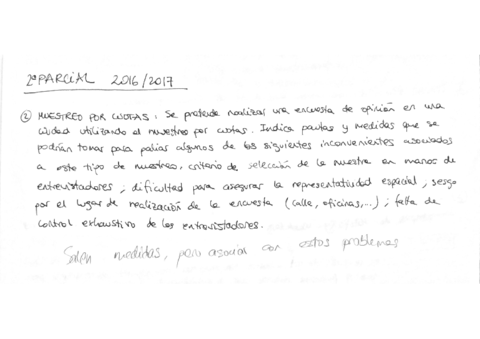 2º PARCIAL 2016/2017
② MUESTREO POR CUOTAS. Se pretende realizar una encuesta de opinión en una
ciudad utilizando el muestreo por cuotas. Indica pautas y medidas que se
podrían tomar para paliar algunos de los siguientes inconvenientes asociados
a este tipo de muestreo, criterio de selección de la muestra en manos de
entrevistadores, dificultad para asegurar la representatividad espacial, sesgo
por el lugar de realización de la encuesta (calle, oficinas,...); falta de
control exhaustivo de los entrevistadores.
Salen medidas, pero asociar con estos problemas